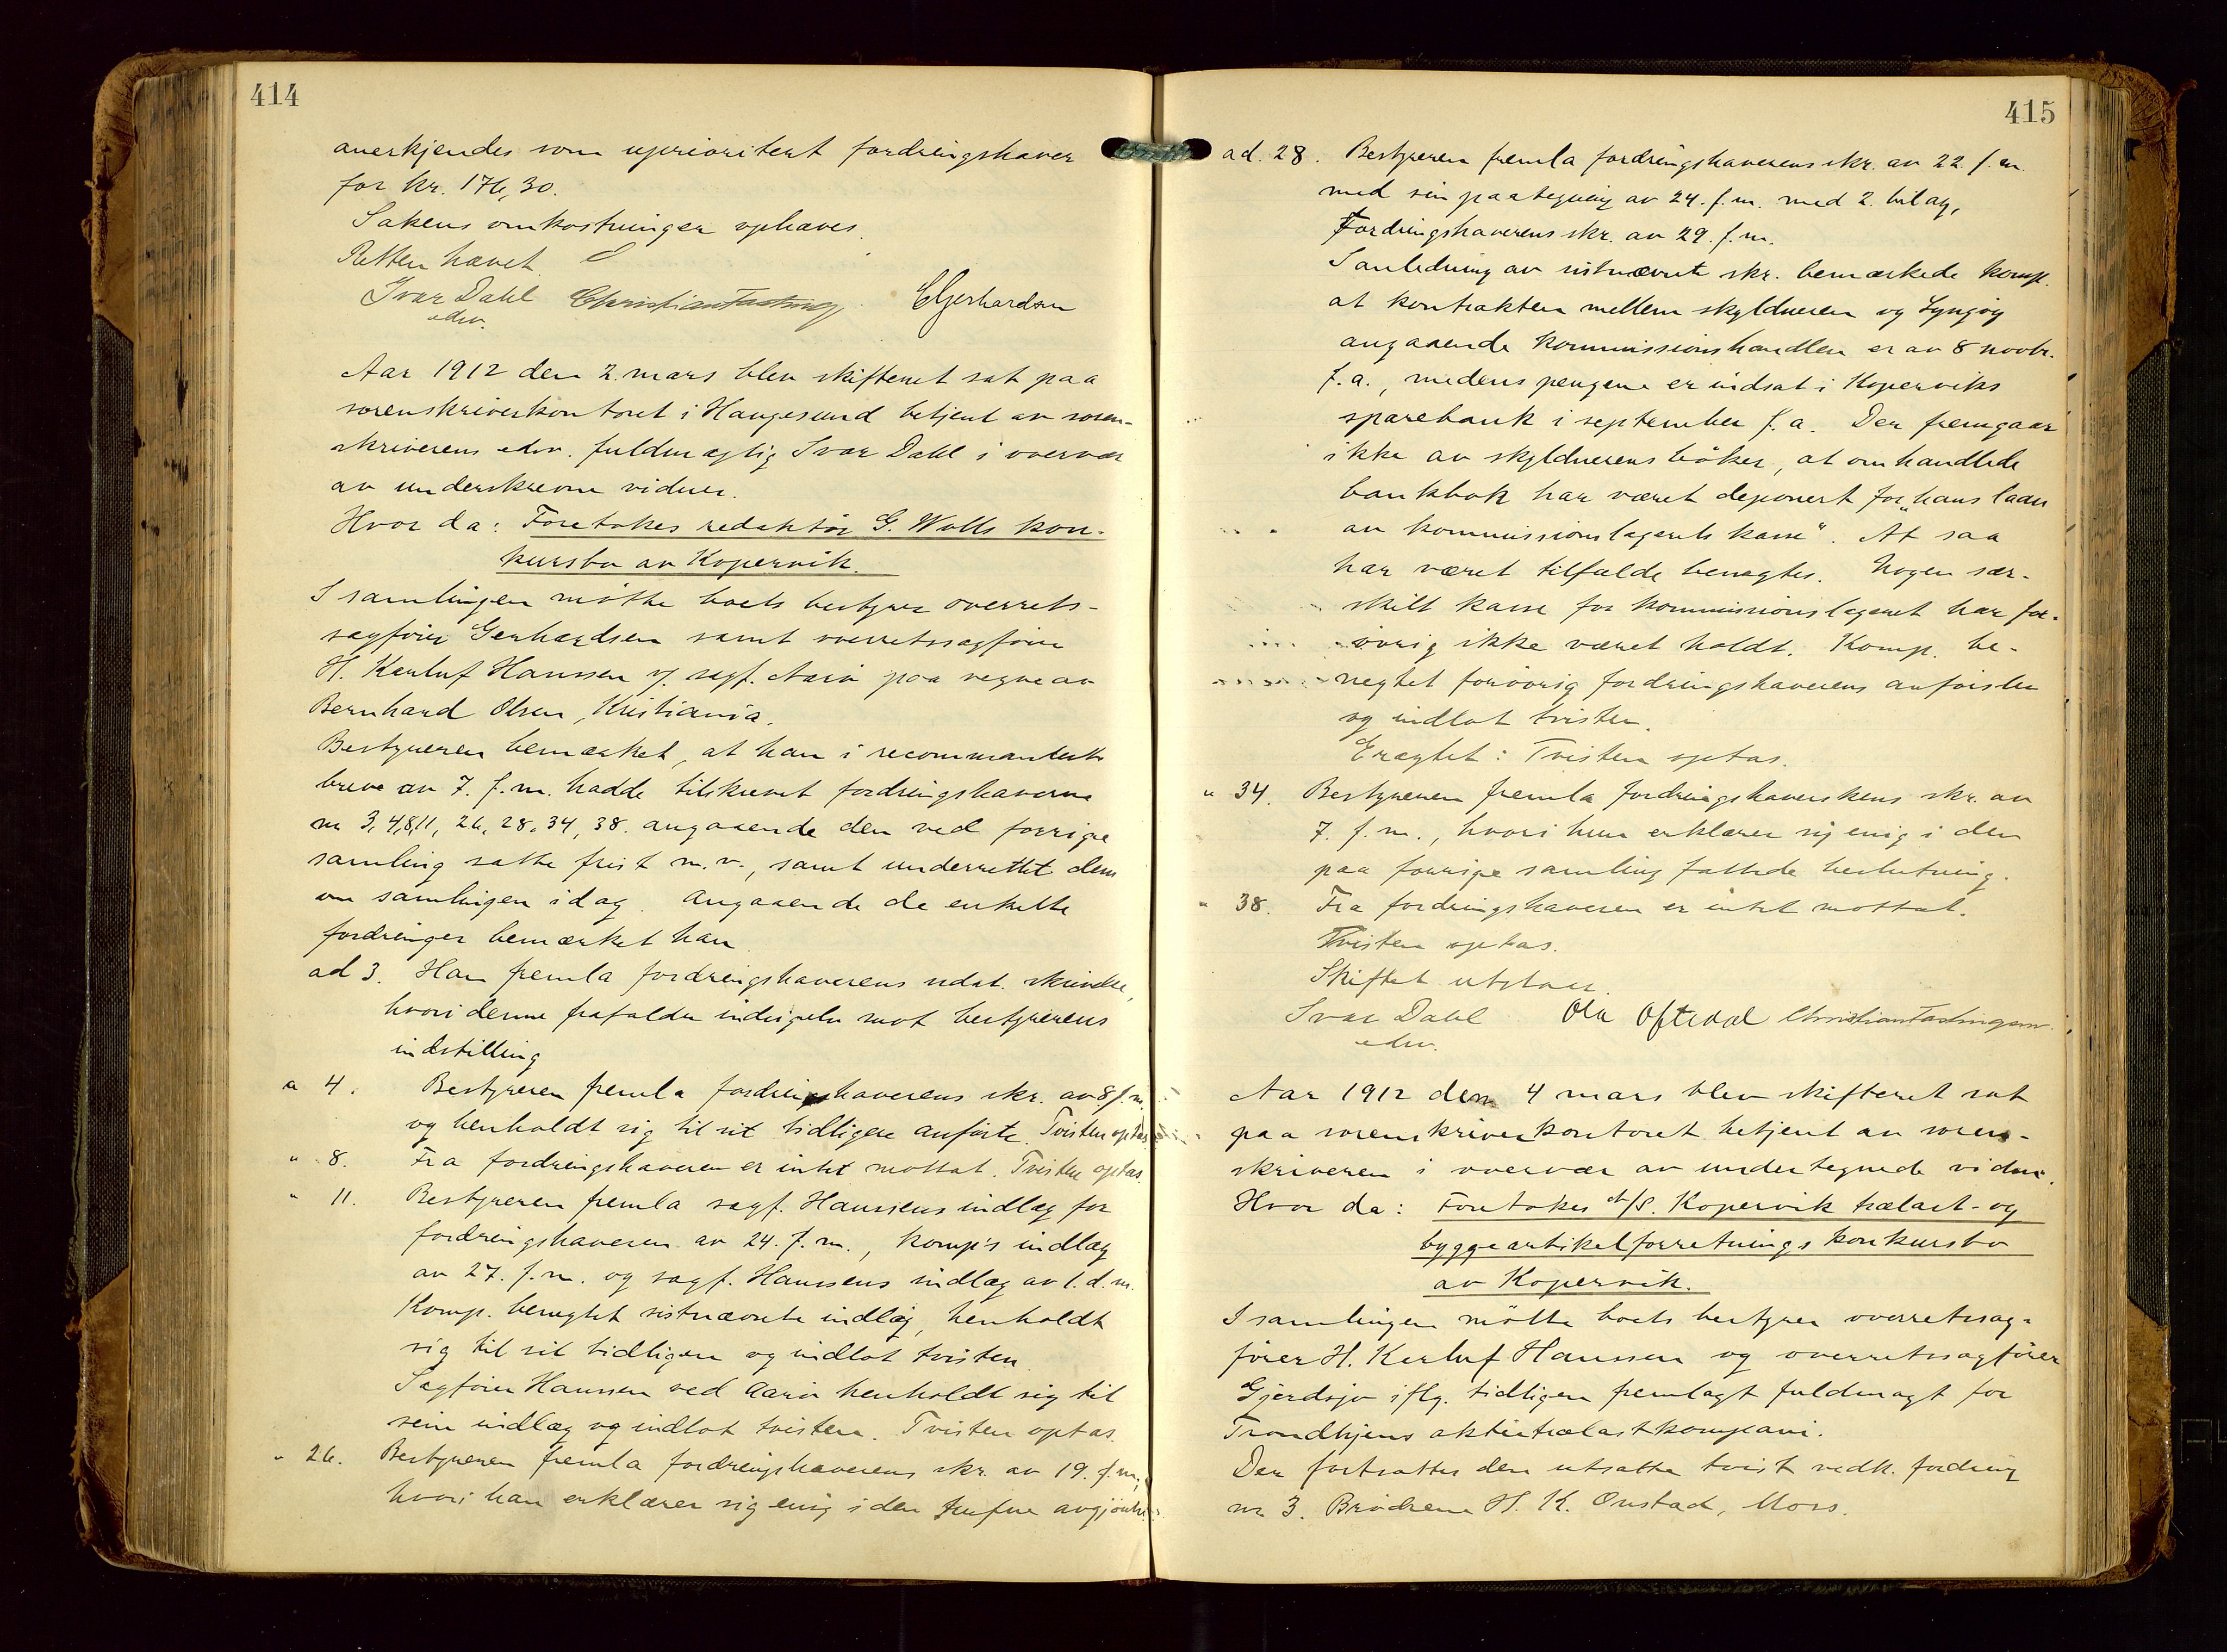 414
anerkjendes som uprioritert fordringshaver
for kr. 176,30.
Sakens omkostninger ophæves.
Retten hævet.
Ivar Dahl Christian Fastning CGerhardsen
edsv.
Aar 1912 den 2. mars blev skifteret sat paa
sorenskriverkontoret i Haugesund betjent av soren-
skriverens edsv. fuldmægtig Ivar Dahl i overvær
av underskrevne vidner.
Hvor da: Foretokes redaktør G. Wolls kon-
kursbo av Kopervik.
I samlingen møtte boets bestyrer overrets-
sagfører Gerhardsen samt overretssagfører
H. Kerluf Hanssen v/ sagf. Aarø paa vegne av
Bernhard Olsen, Kristiania.
Bestyreren bemærket, at han i recommanderte
breve av 7. f.m. hadde tilskrevet fordringshaverne
nr 3, 4, 8, 11, 26, 28, 34, 38. angaaende den ved forrige
samling satte frist m.v., samt underrettet dem
om samlingen idag. Angaaende de enkelte
fordringer bemærket han
ad 3. Han fremla fordringshaverens udat. skrivelse,
hvori denne frafalder indsigelse mot bestyrerens
indstilling
" 4. Bestyreren fremla fordringshaverens skr. av 8 f.m.
og henholdt sig til sit tidligere anførte. Tvisten optas.
" 8. Fra fordringshaveren er intet mottat. Tvisten optas.
" 11. Bestyreren fremla sagf. Hanssens indlæg for
fordringshaveren av 24. f.m., komp's indlæg
av 27. f.m. og sagf. Hanssens indlæg av 1. d.m.
Komp. benegtet sistnævnte indlæg, henholdt
sig til sit tidligere og indlot tvisten.
Sagfører Hanssen ved Aarø henholdt sig til
sine indlæg og indlot tvisten. Tvisten optas.
" 26. Bestyreren fremla fordringshaverens skr. av 19. f.m.,
hvori han erklærer sig enig i den trufne avgjørelse.
415
ad. 28. Bestyreren fremla fordringshaverens skr. av 22. f.m.
med sin paategning av 24. f.m. med 2. bilag,
Fordringshaverens skr. av 29. f.m.
I anledning av sistnævnte skr. bemærkede komp.
at kontrakten mellem skyldneren og Lyngøy
angaaende kommissionshandlen er av 8 novbr.
f.a., medens pengene er indsat i Koperviks
sparebank i september f.a. Der fremgaar
ikke av skyldnerens bøker, at omhandlede
bankbok har været deponert for "hans laan
av kommissionslagerets kasse". At saa
har været tilfælde benegtes. Nogen sær-
skilt kasse for kommissionslageret har for-
øvrig ikke været holdt. Komp. be-
negtet forøvrig fordringshaverens anførsler
og indlot tvisten.
Eragtet: Tvisten optas.
" 34. Bestyreren fremla fordringshaverskens skr. av
7. f.m., hvori hun erklærer sig enig i den
paa forrige samling fattede beslutning.
" 38. Fra fordringshaveren er intet mottat.
Tvisten optas.
Skiftet utstaar.
Ivar Dahl Ola Oftedal
edsv.
Aar 1912 den 4 mars blev skifteret sat
paa sorenskriverkontoret betjent av soren-
skriveren i overvær av undertegnede vidner.
Hvor da: Foretokes A/S. Kopervik trælast- og
byggeartikelforretnings konkursbo
av Kopervik.
I samlingen møtte boets bestyrer overretssag-
fører H. Kerluf Hanssen og overretssagfører
Gjerdsjø iflg. tidligere fremlagt fuldmagt for
Trondhjems aktietrælastkompani.
Der fortsattes den utsatte tvist vedk. fordring
nr 3. Brødrene H. K. Onstad, Moss.